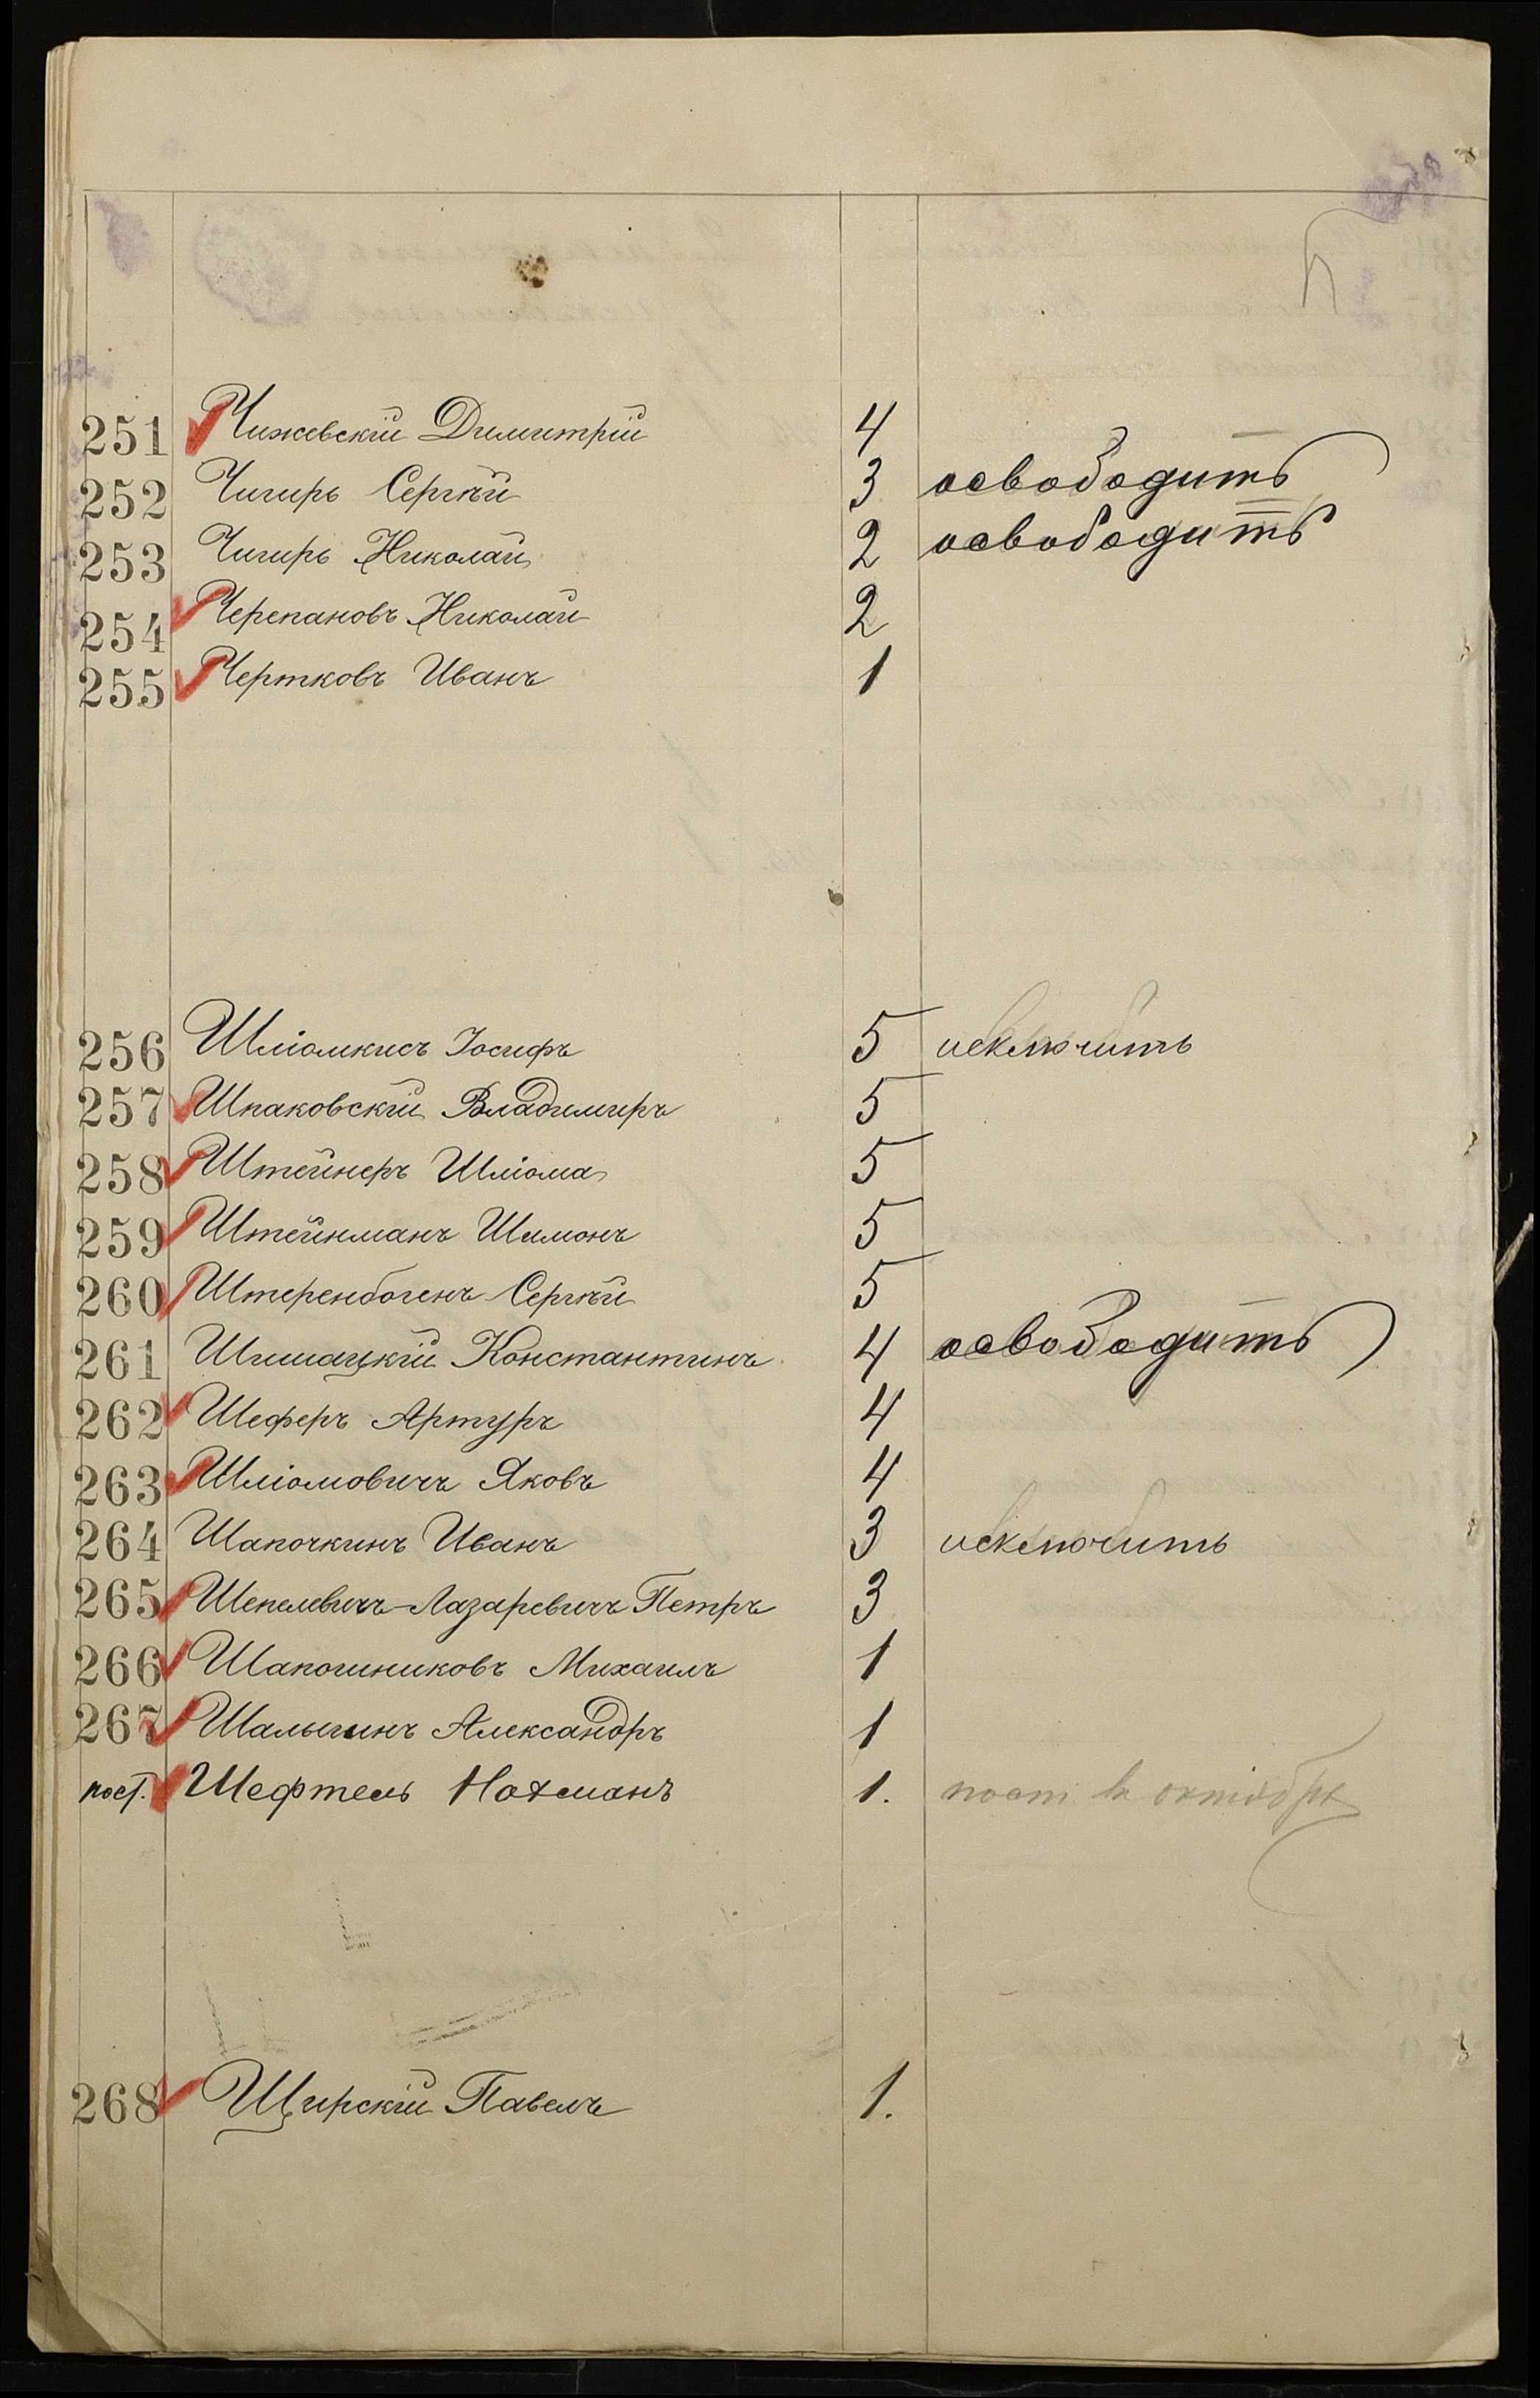 251 Чижевскій Димитрій 4
252 Чигирь Сергѣй 3 освободить
253 Чигирь Николай 2 освободить
254 Черепановъ Николай 2
255 Чертковъ Иванъ 1
256 Шліомкисъ Іосифъ 5 исключить
257 Шпаковскій Владимиръ 5
258 Штейнеръ Шліома 5
259 Штейнманъ Шимонъ 5
260 Штеренбогенъ Сергѣй 5
261 Шимацкій Константинъ 4 освободить
262 Шеферъ Артуръ 4
263 Шліомовичъ Яковъ 4
264 Шапочкинъ Иванъ 3 исключить
265 Шепелевичъ-Лазаревичъ Петръ 3
266 Шапошниковъ Михаилъ 1
267 Шалыгинъ Александръ 1
пост. Шефтель Нахманъ 1. пост въ октябрѣ
268 Щирскій Павелъ 1.